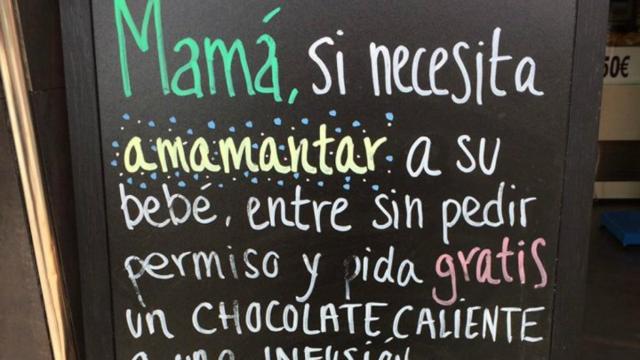 Mamá, si necesita
amamantar a su
bebé, entre sin pedir
permiso y pida gratis
un CHOCOLATE CALIENTE
o una INFUSIÓN
50€